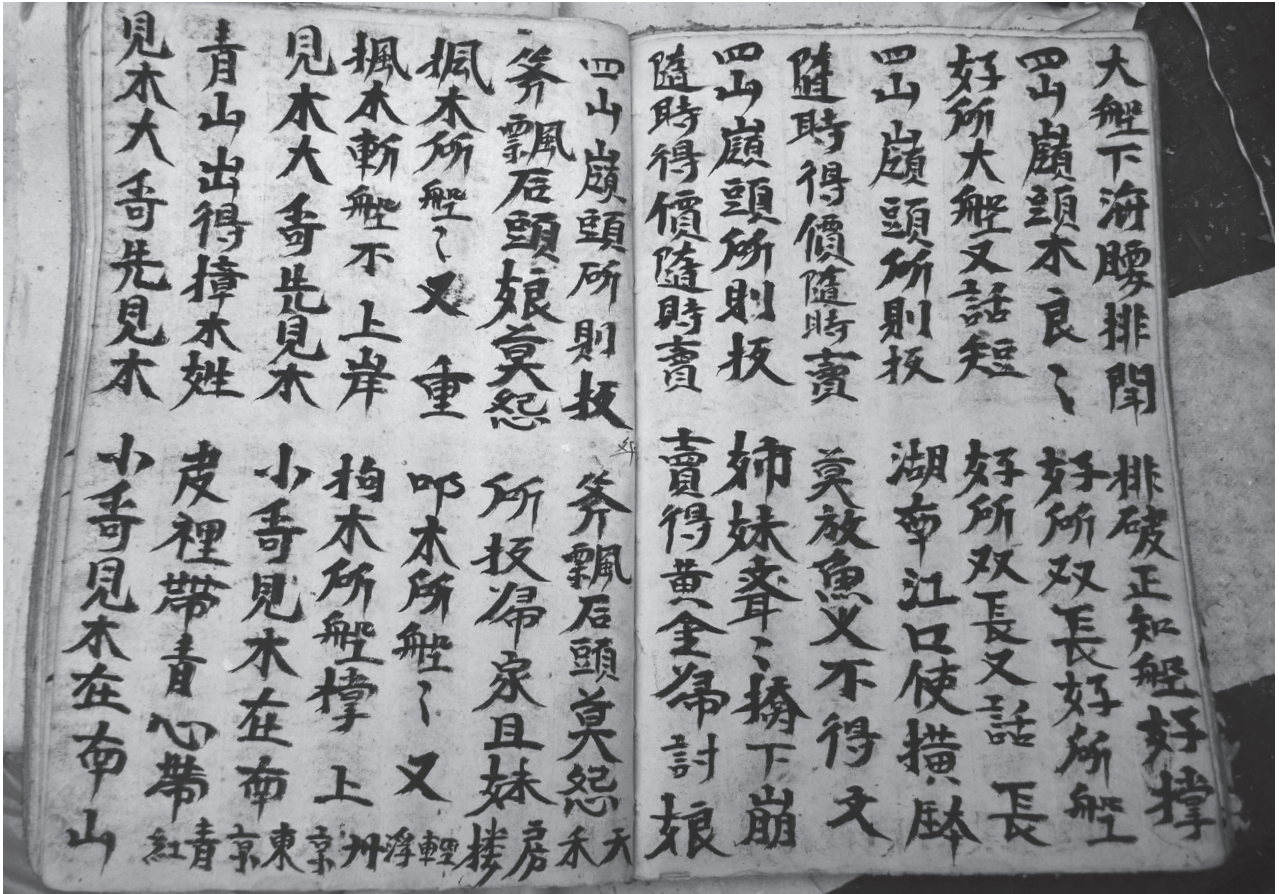 大船下海腰排閏　排破正知船好撑
四山嶺頭木良〻　好所双長好所船
好所大船又話短　好所双長又話長
四山嶺頭所則板　湖南江口使橫
隨時得價隨時賣　莫放魚乂不得文
四山嶺頭所則板　姉妹〻橋下崩
隨時得價隨時賣　賣得黄金歸討娘
四山嶺頭所則板　斧飄石頭莫怨
斧飄石頭娘莫怨　所板歸家且妹
楓木所船〻又重　叩木所船〻又
楓木斬船不上岸　拘木所船撑上
見木大哥先見木　小哥見木在南
青山出得撑木姓　皮裡帶青心帶
見木大哥先見木　小哥見木在南山
天禾房楼輕浮州京東京青紅